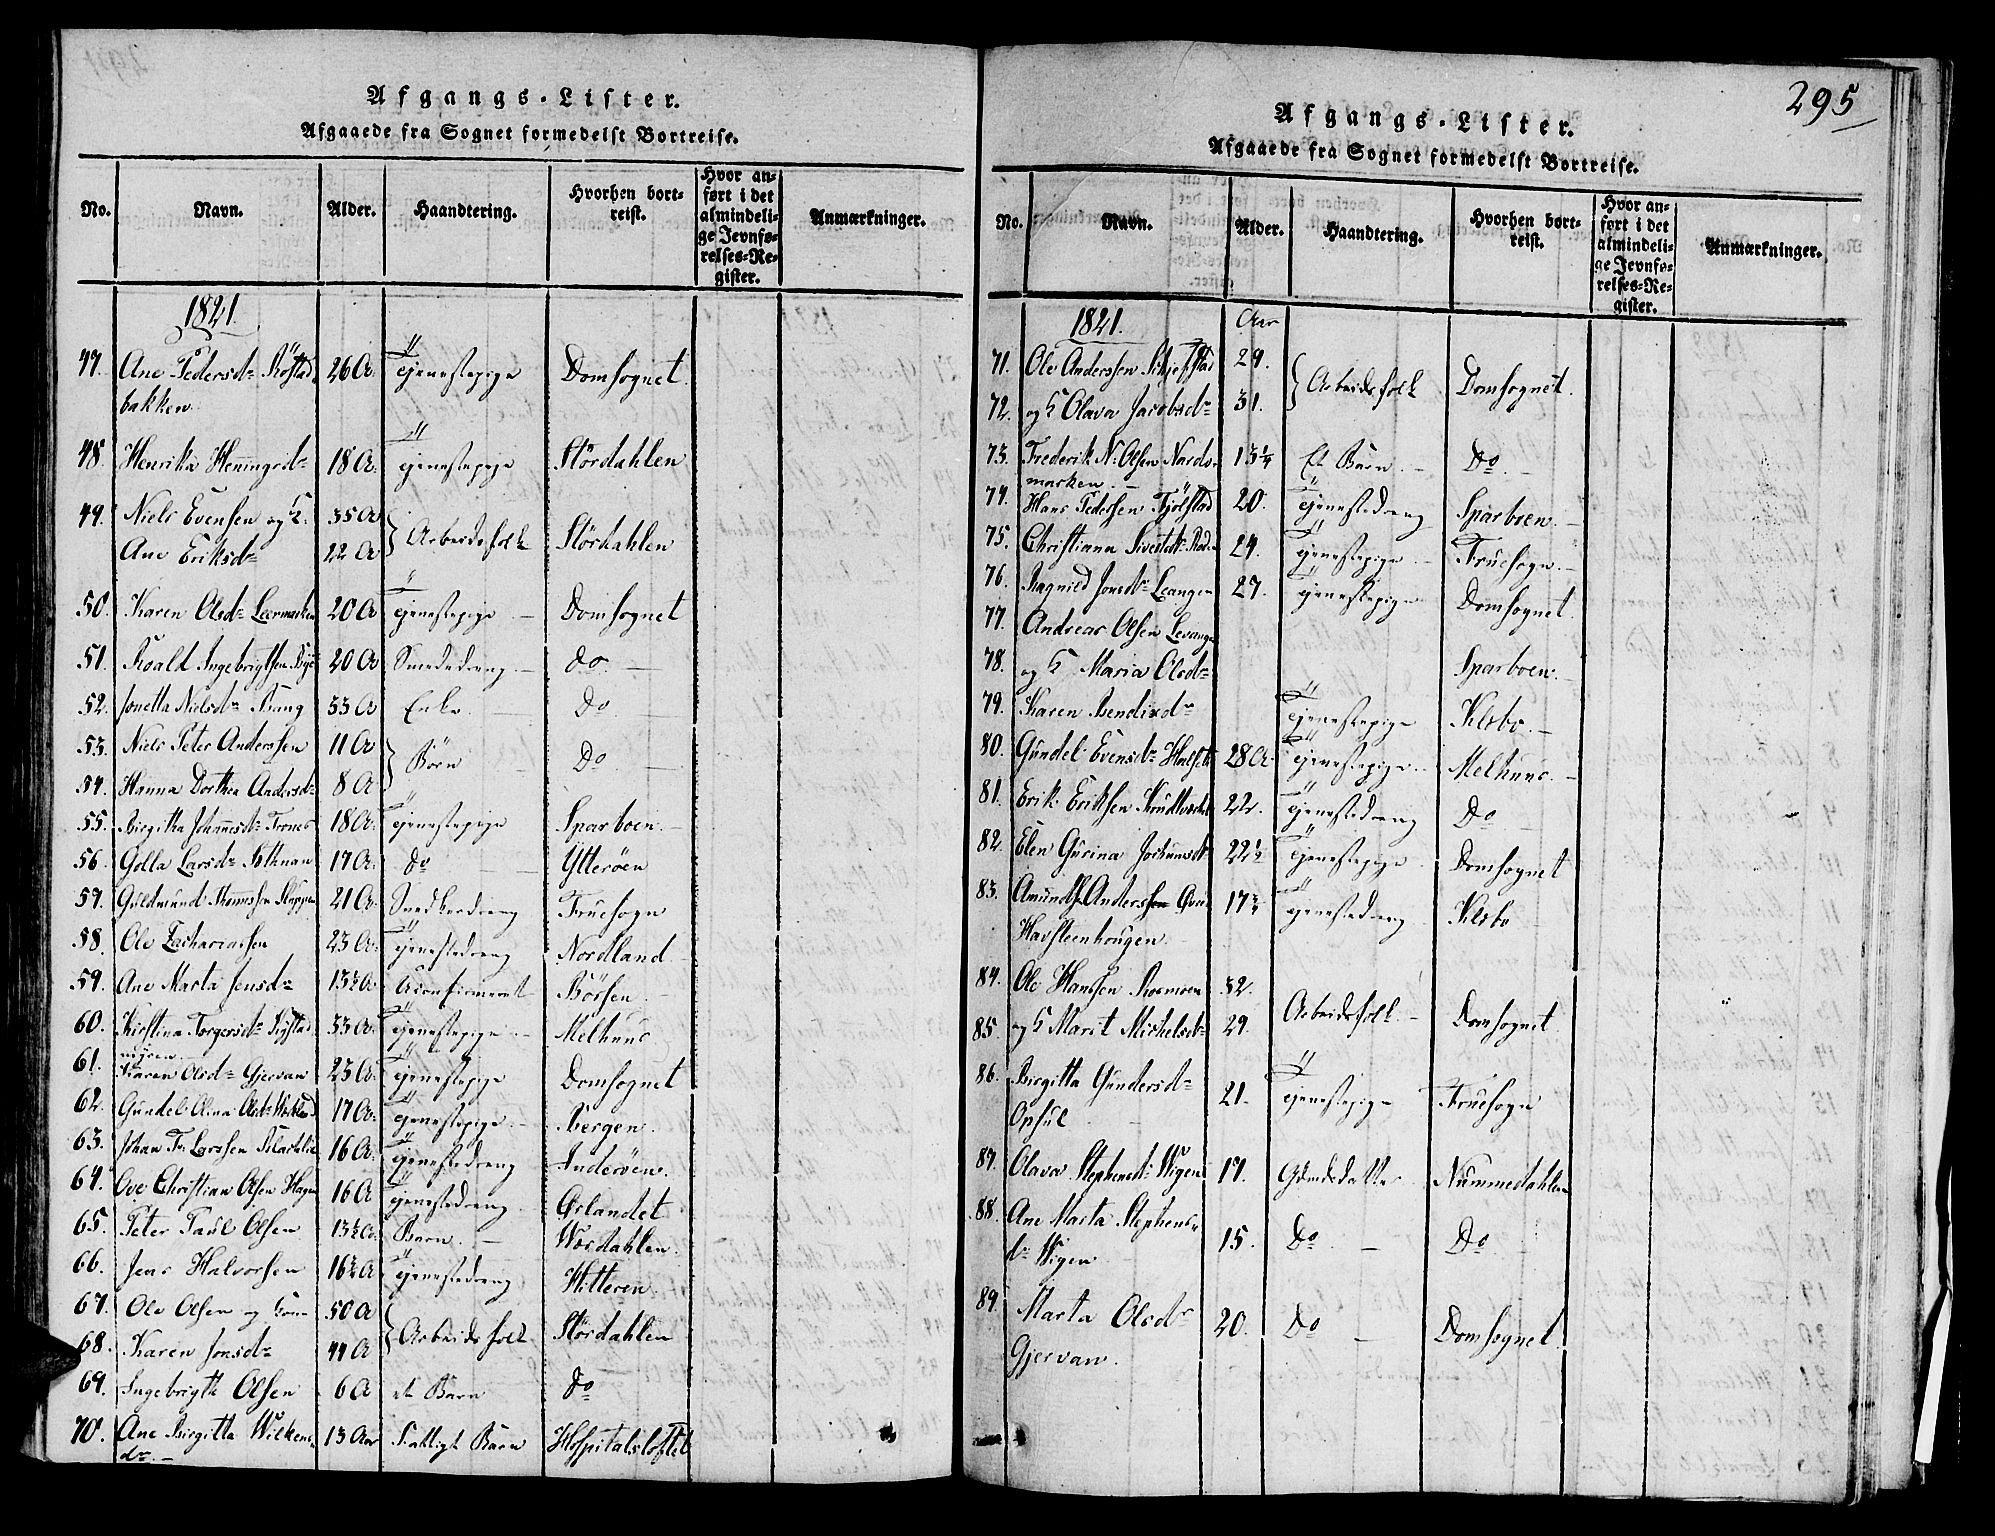 Afgangs-Lister.
Afgaaede fra Sognet formedelst Bortreise.
No. Navn. Alder. Haandtering. Hvorhen bortreist. Hvor anført i det almindelige Jevnførelses-Register. Anmærkninger.
1821.
47. Ane Pedersdr Röstad 26 A. Tjenestepige Domsognet.
bakken.
48. Henrika Henningsdr 18 A. Tjenestepige Stördahlen
49. Niels Evensen og K. 35 A Arbeidsfolk Stördahlen
Ane Eriksdr 22 A
50. Karen Olsdr Leermarken 20 A Tjenestepige Domsognet
51. Roald Ingebrigtsen Bye 20 A Smededreng Do
52. Jonetta Nielsdr Bang 53 A Enke Do
53. Niels Peter Anderssen 11 A Börn Do
54. Hanna Dorthea Andersdr 8 A
55. Birgitha Johannesdr Trones 18 A. Tjenestepige Sparboen.
56. Golla Larsdr 17 A. Do Ytteröen
57. Guldmund Thomessen 21 A. Snedkerdreng Fruesogn
58. Ole Zachariassen 23 A. Tjenestedreng Nordland
59. Ane Marta Jensdr 13½ A Uconfirmeret Börsen.
60. Kirstina Torgersdr Rystad 33 A. Tjenestepige Melhuus
myren.
61. Karen Olsdr Gjervan 23 A. Tjenestepige Domsognet
62. Gundel Olina Olsdr 17 A. Tjenestepige Bergen.
63. Johan Fr. Larssen 16 A. Tjenestedreng Inderöen.
64. Ove Christian Olsen Hagen 16 A Tjenestedreng. Örlandet
65. Peter Paul Olsen 13½ A. Barn. Værdahlen.
66. Jens Halvorsen 16½ A Tjenestedreng Hitteren.
67. Ole Olsen og Kone 50 A Arbeidsfolk Stördahlen
68. Karen Jonsdr 44 A
69. Ingebrigth Olsen 6 A et Barn Do
70. Ane Birgitta Wilkens 13 Aar Fattigt Barn Hospitalsloftet
dr.
295
Afgangs-Lister.
Afgaaede fra Sognet formedelst Bortreise.
No. Navn. Alder. Haandtering. Hvorhen bortreist. Hvor anført i det almindelige Jevnførelses-Register. Anmærkninger.
1821. Aar
71. Ole Anderssen 29. Arbeidsfolk Domsognet.
72. og K Olava Jacobsdr 31.
73. Frederik N. Olsen Nardo 13¼ Et Barn. Do.
marken.
74. Hans Pedersen Fjölstad 20. Tjenestedreng Sparboen.
75. Christiana 24. Tjenestepige Fruesogn.
76. Ragnild Jonsdr Leangen 27. Tjenestepige Domsognet
77. Andreas Olsen Levangen
78. og K Maria Olsdr Sparboen.
79. Karen Bendixdr Tjenestepige Klæbo.
80. Gundel Evensdr 28 A. Tjenestepige Melhuus.
81. Erik Eriksen 22. Tjenestedreng Do
82. Elen Gurina Jochumsdr 22½ Tjenestepige Domsognet
83. Amund Anderssen 17¾ Tjenestedreng Klæbo
Havsteenhougen.
84. Ole Hanssen Rosmoen 32. Arbeidsfolk. Domsognet
85. og K Marit Michelsdr 29.
86. Birgitta Gundersdr 21. Tjenestepige Fruesogn
Opsul
87. Olava Stephensdr Wigen 17. Nummedahlen
88. Ane Marta Stephens 15. Do Do
dr Wigen
89. Marta Olsdr 20. Do Domsognet
Gjervan.